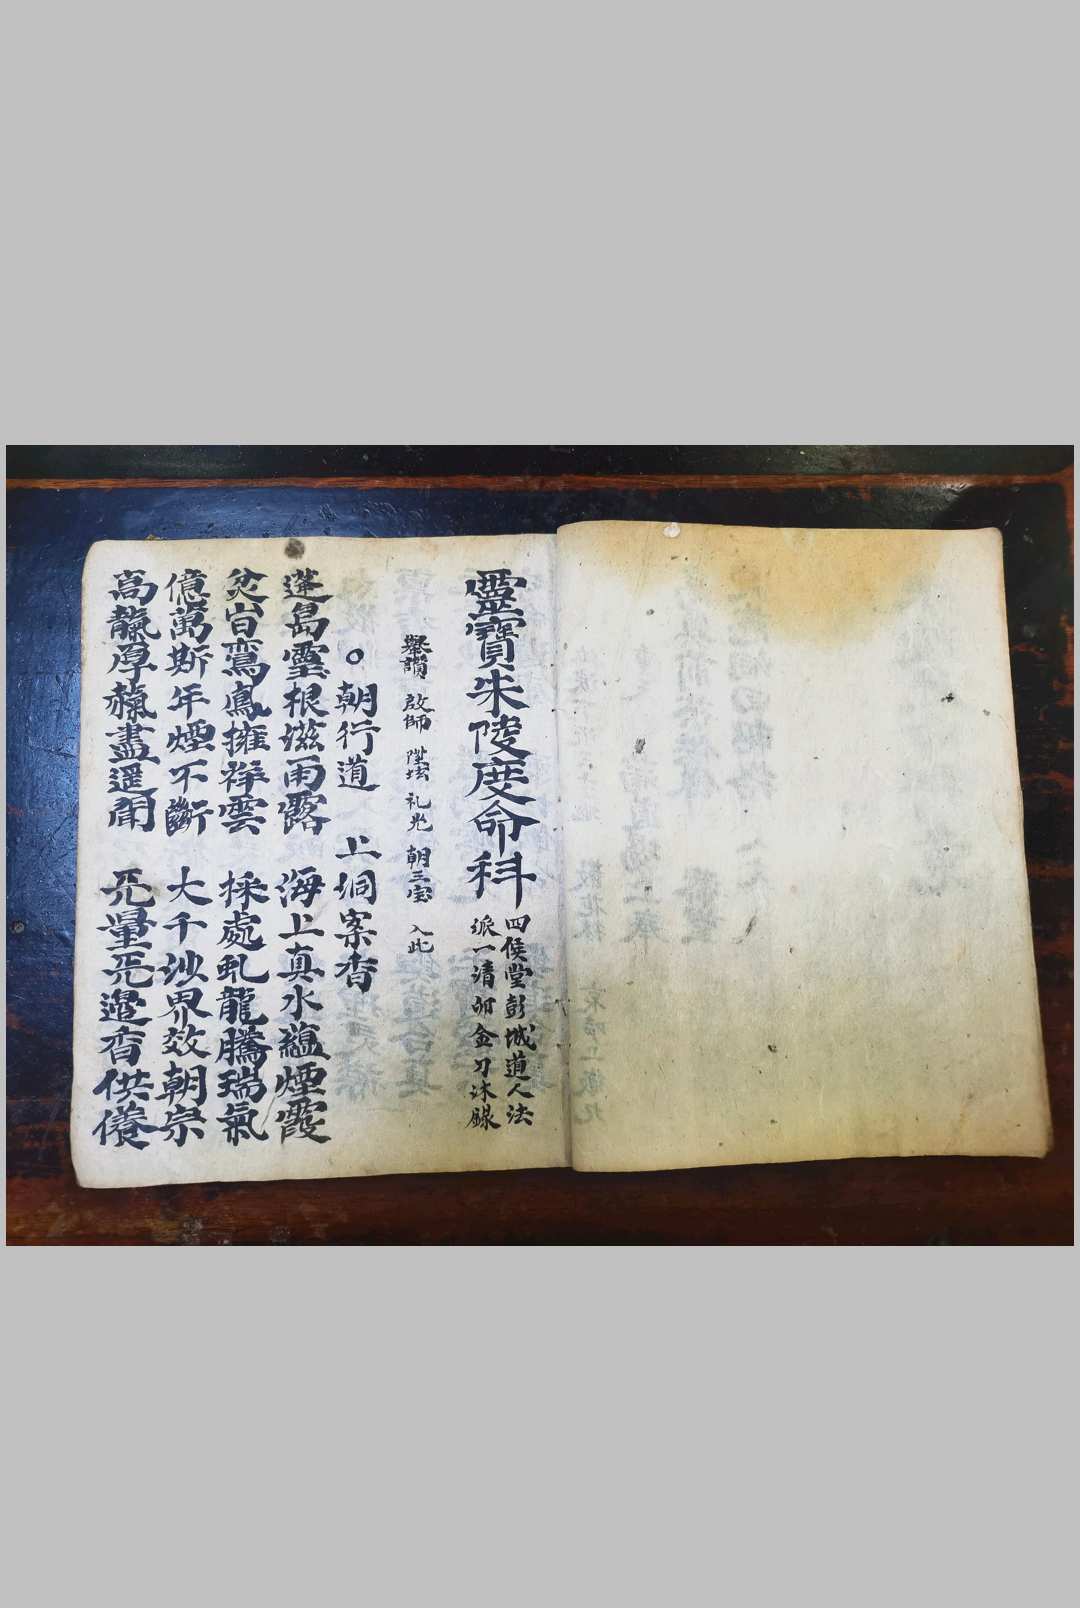 靈寶朱陵度命科
四侯堂彭城道人法
派一清卯金刀沐録
舉讚 啟師 陞坛 礼光 朝三宝 入此
○朝行道 上洞案香
蓬島靈根滋雨露 海上真水蘊煙霞
焚旹鸞鳳擁祥雲 採處虬龍騰瑞氣
億萬斯年煙不斷 大千沙界效朝宗
高靝厚𪐀盡遥聞 旡量旡邊香供養